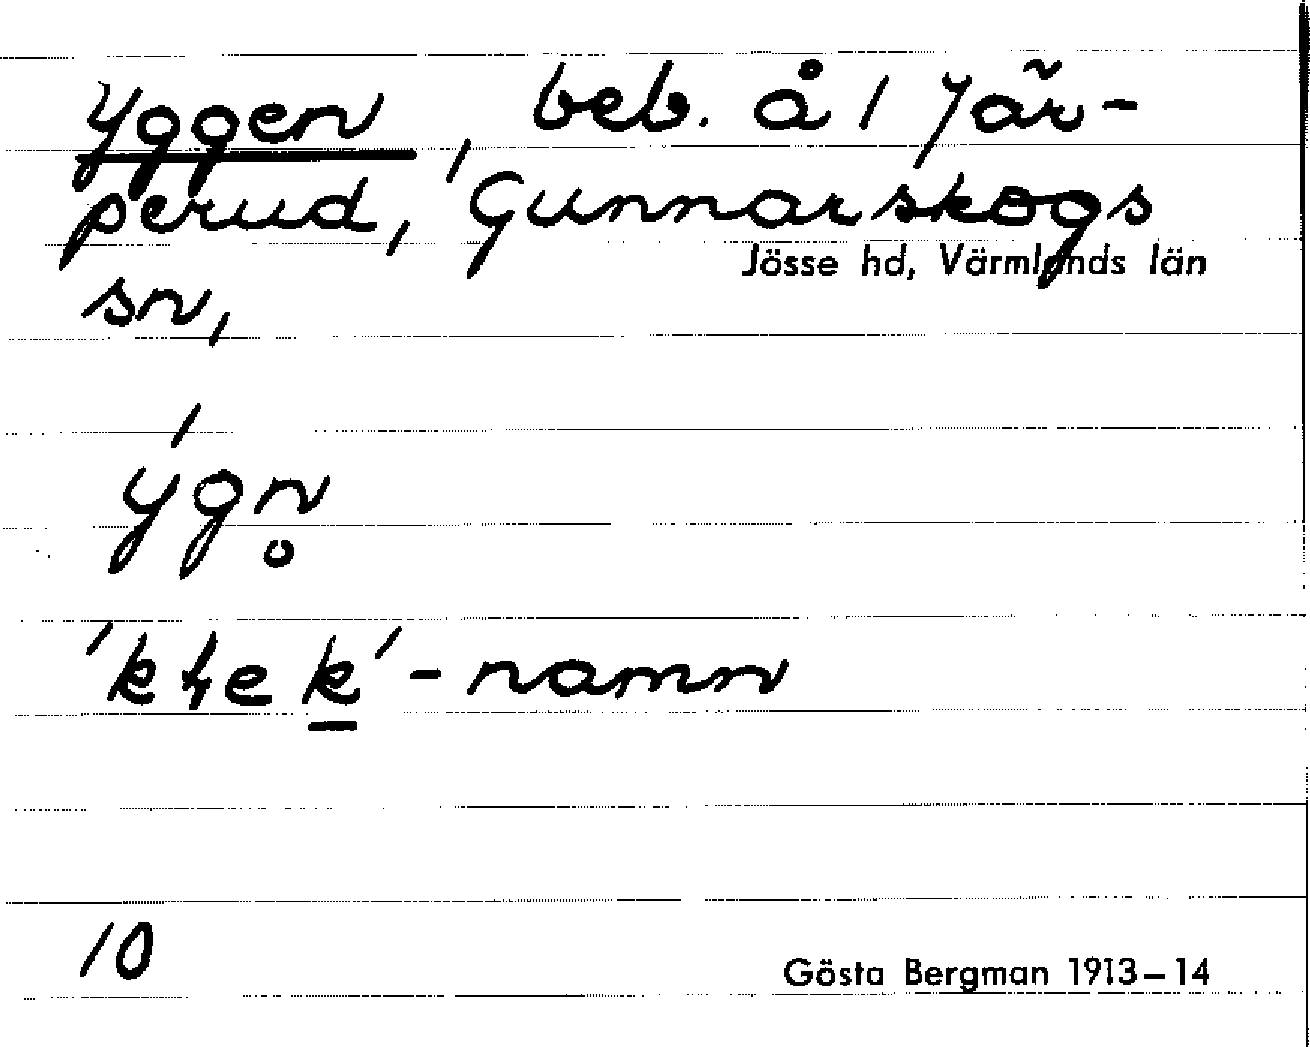 Yggen, beb. å 1 Jär-
perud, Gunnarskogs
Jösse hd, Värmlands län
sn,
´ygn̥
'k he k̲'-namn
10
Gösta Bergman 1913–14